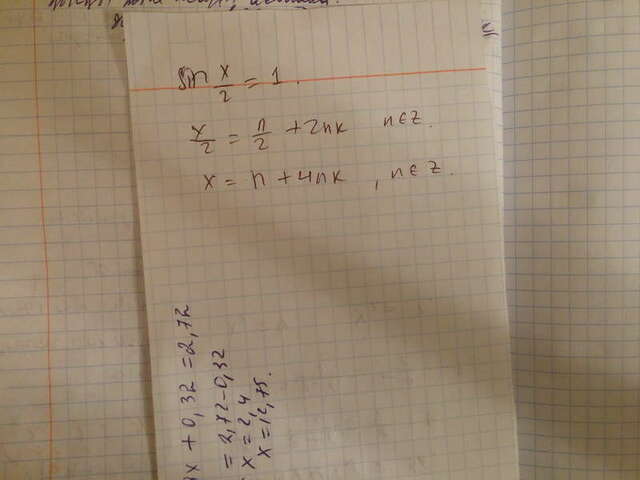 x + 0,32 = 2,72
= 2,72 - 0,32
x = 2,4
x = 12,75.
sin x/2 = 1.
x/2 = π/2 + 2πk n∈z.
x = π + 4πk , n∈z.